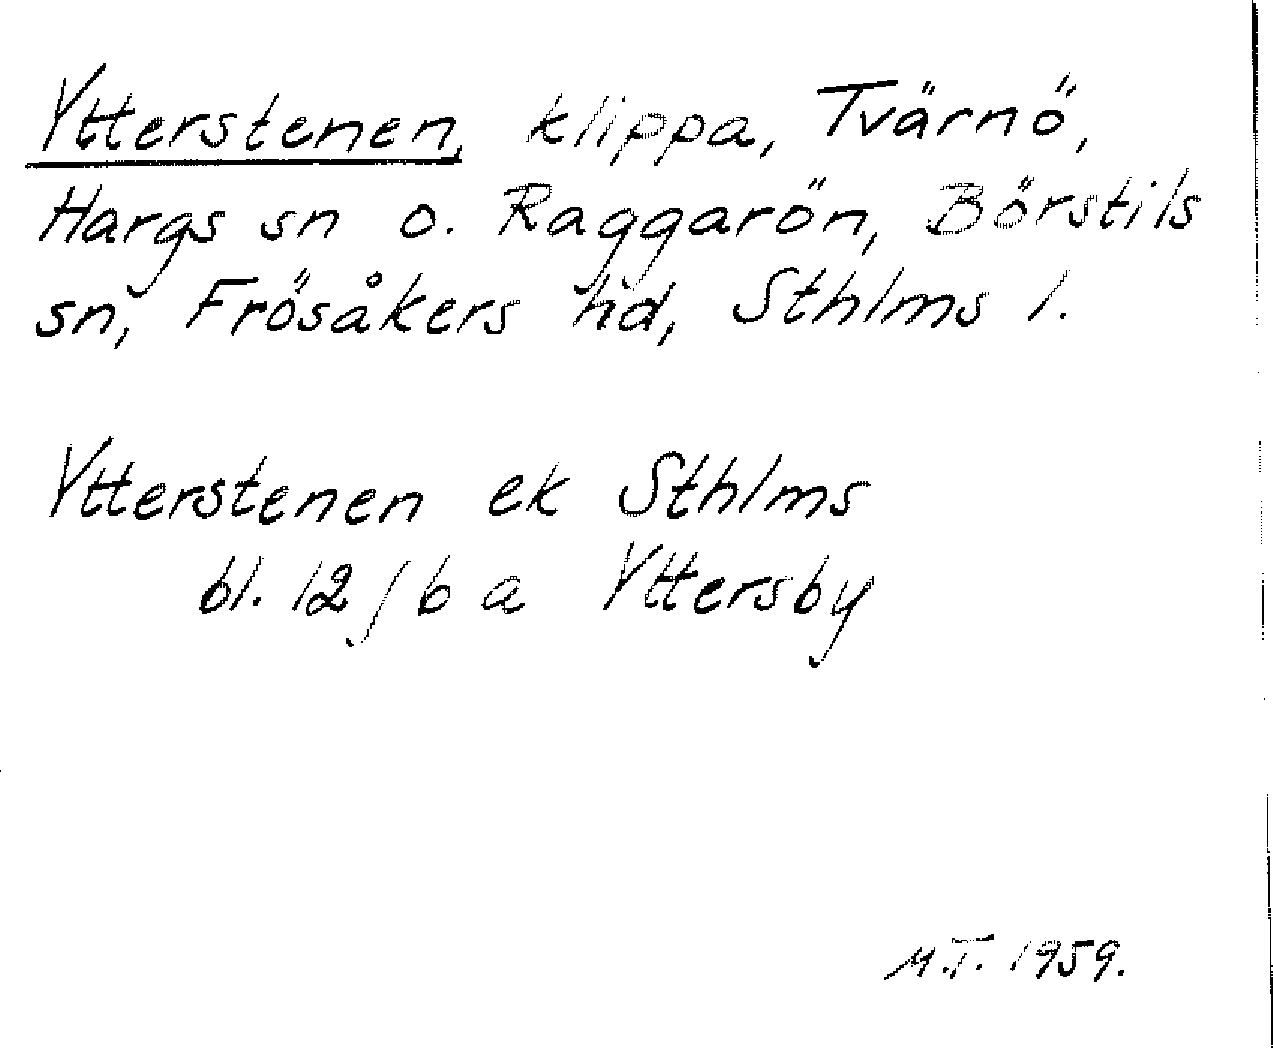 Ytterstenen, klippa, Tvärnö,
Hargs sn o. Raggarön, Börstils
sn, Frösåkers hd, Sthlms l.
Ytterstenen ek Sthlms
bl. 12/6 a Yttersby
M.T. 1959.